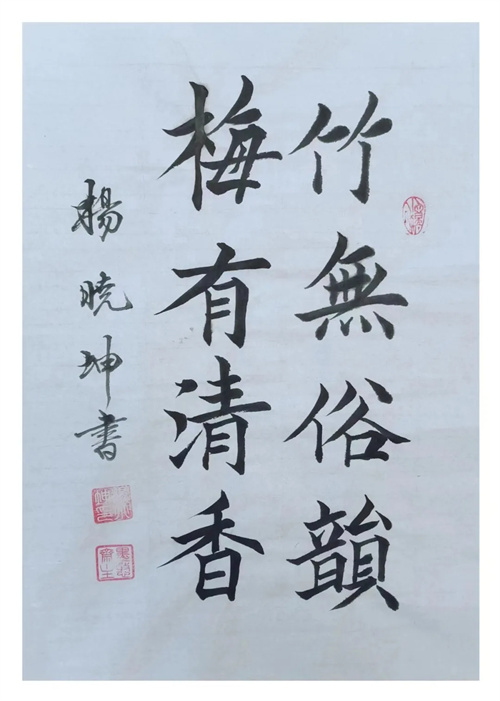 竹無俗韻
梅有清香
楊曉坤書